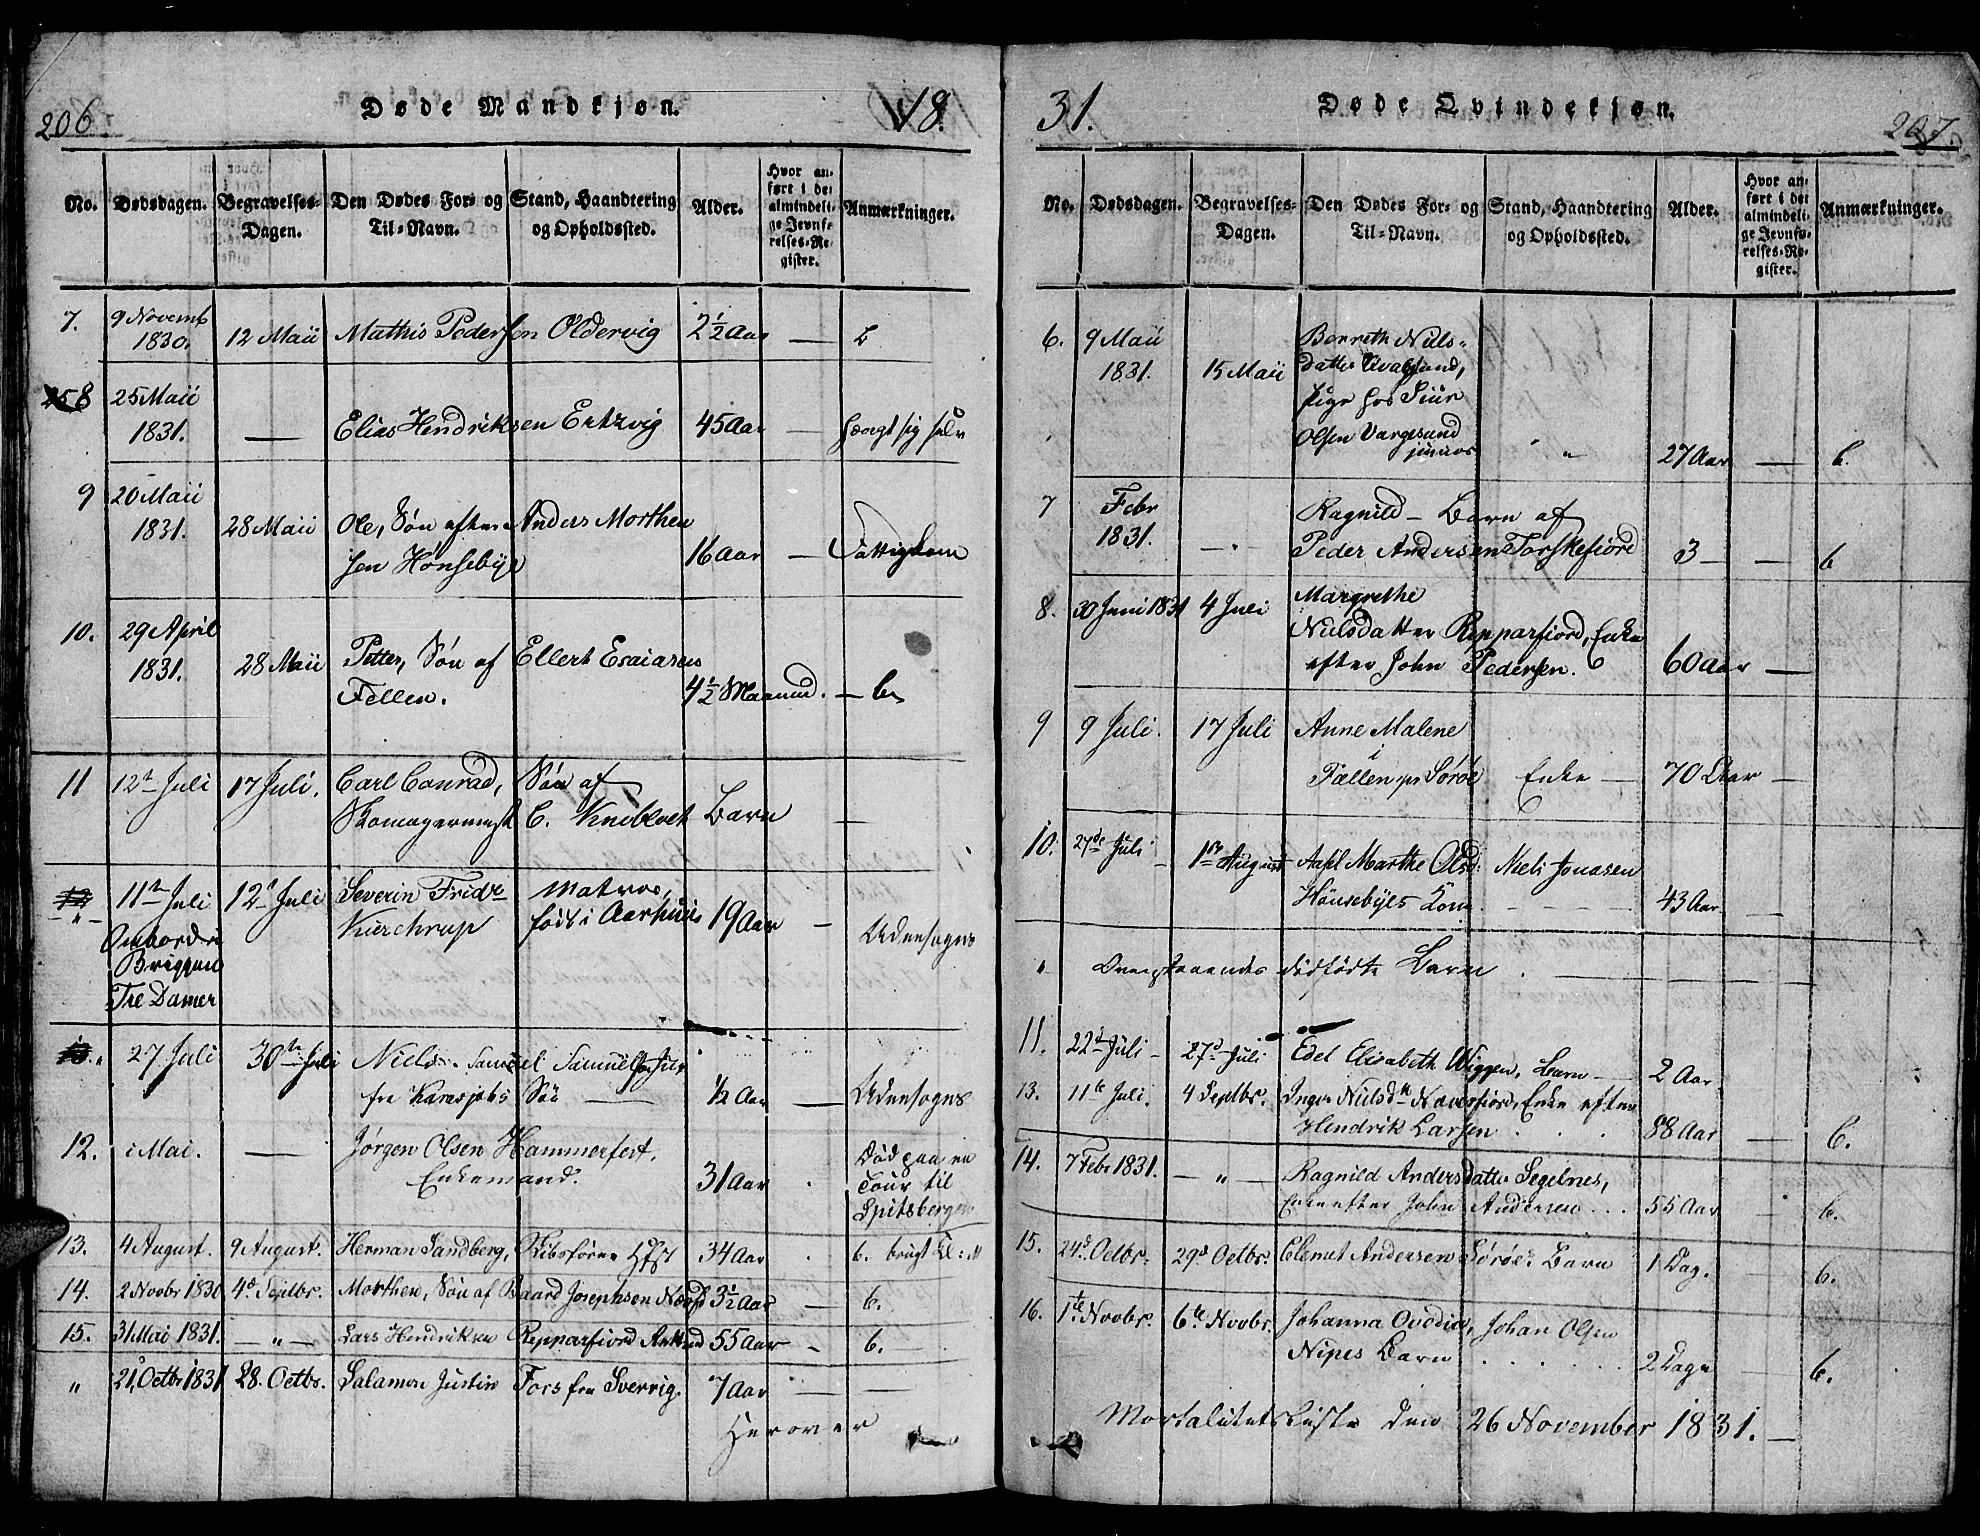 206.
Døde Mandkjøn.
18.
No.
Dødsdagen.
Begravelses-
Dagen.
Den Dødes For- og
Til-Navn.
Stand, Haandtering
og Opholdssted.
Alder.
Hvor an-
ført i det
almindeli-
ge Jevnfø-
relses-Re-
gister.
Anmærkninger.
7. 9 Novemb 12 Maii Mathis Pedersen Oldervig 2½ Aar — b
1830.
8 25 Maii
1831. — Elias Hendriksen Ertzvig 45 Aar — hængt sig selv
9 20 Maii
1831. 28 Maii Ole, Søn efter Anders Morthen
sen Hønsebye 16 Aar —
10. 29 April
1831. 28 Maii Petter, Søn af Ellert Esaiasens
Fellen. 4½ Maaned. — b
11 12te Juli 17 Juli. Carl Conrad, Søn af
Skomagermest C. Knoblock Barn —
11te Juli 12t Juli Severin Fridr Matros,
Ombord i Kierchrup født i Aarhuus 19 Aar — Udensogns
Briggen
Tre Damer
27 Juli 30te Juli Niels Samuel Samuelsens
fra Karasjoks Søn — ½ Aar — Udensogns
12. i Mai. — Jørgen Olsen Hammerfest,
Enkemand. 31 Aar Død paa en
Tour til
Spitsbergen
13. 4 August. 9 August. Herman Sandberg, 34 Aar b. brugt
14. 2 Novbr 1830 4d Septbr. Morthen, Søn af Baard Josephsen 3½ Aar — b.
15. 31 Mai 1831. — " — Lars Hendriksen Repparfiord 55 Aar — b.
" 21 Octbr 1831 28. Octbr. Salamon Justin Fors fra Sverrig. 7 Aar — —
Herover
31.
Døde Qvindekjøn.
207.
No.
Dødsdagen.
Begravelses-
Dagen.
Den Dødes For- og
Til-Navn.
Stand, Haandtering
og Opholdssted.
Alder.
Hvor an-
ført i det
almindeli-
ge Jevnfø-
relses-Re-
gister.
Anmærkninger.
6. 9 Maii Berreth Nils-
1831. 15 Maii datter Qvalsund,
pige hos Siur
Olsen Vargesund
junior " 27 Aar — b.
7 Febr Ragnild — Barn af
1831. — " — Peder Andersens Torskefiord 3 — — b
8. 30 Juni 1831 4 Juli Margrethe
Nilsdatter Repparfiord, Enke
efter John Pedersen. 60 Aar —
9 9 Juli. 17 Juli Anne Malene
i
Fællen paa Sørøe Enke — 70 Aar —
10. 27de Juli — 1ste August Axel Marthe Olsd: Niels Jonasen
Hønsebyes Kone — — — 43 Aar —
" Ovenstaaendes dødfødte Barn
11. 22d Juli — 27d Juli Edel Elisabeth Wiggen, Barn — 2 Aar
13. 11te Juli. 4 Septbr. Inger Nilsdr Naverfiord, Enke efter
Hendrik Larsen . . . 88 Aar — b.
14. 7 Febr 1831. — " — Ragnild Andersdatter Segelnes,
Enke efter John Andersen . . . 55 Aar b.
15. 24d Octbr. 29d Octbr. Clemet Andersen Sørøes Barn 1 Dag. b.
16. 1te Novbr. 6te Novbr. Johanna Ovedia, Johan Olsen
Nipes Barn . . . . . 2 Dage b.
Mortalitetsliste den 26 November 1831. —